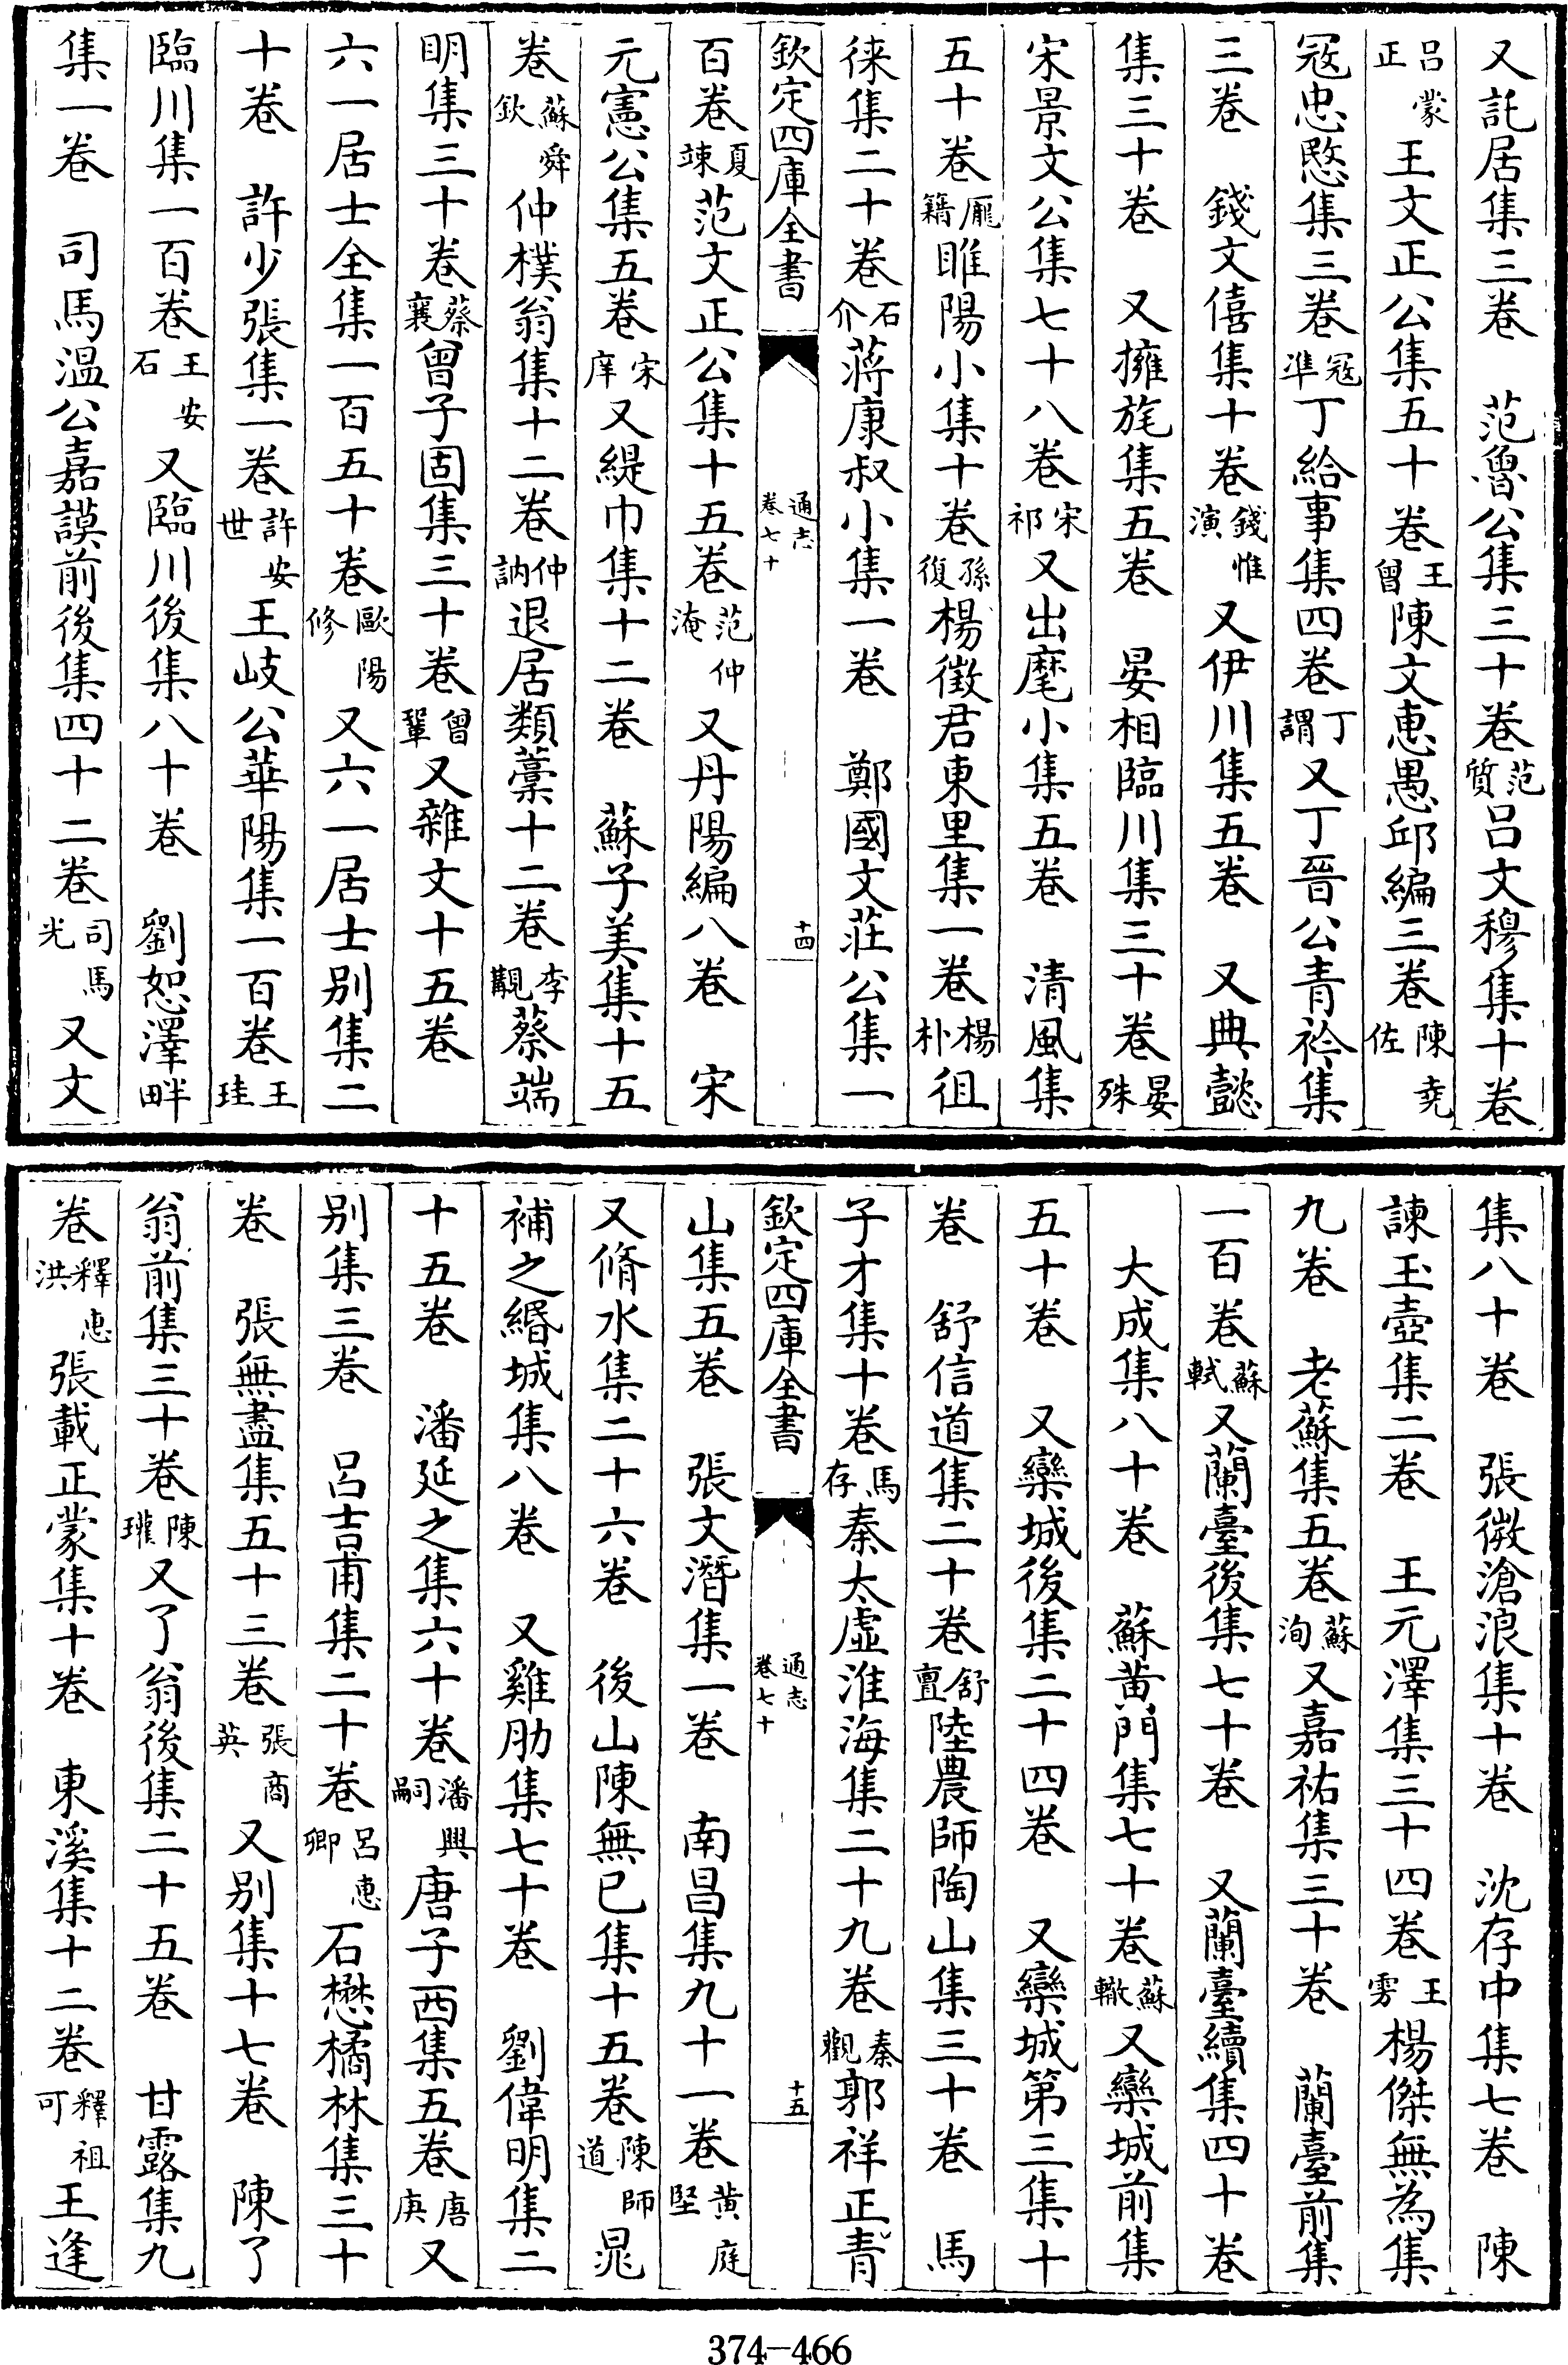 又託居集三卷　范魯公集三十卷范質呂文穆集十卷
呂蒙正王文正公集五十卷王曾陳文惠愚邱編三卷陳堯佐
冦忠愍集三卷冦準丁給事集四卷丁謂又丁晉公青衿集
三卷　錢文僖集十卷錢惟演又伊川集五卷　又典懿
集三十卷　又擁旄集五卷　晏相臨川集三十卷晏殊
宋景文公集七十八卷宋祁又出麾小集五卷　清風集
五十卷龎籍睢陽小集十卷孫復楊徵君東里集一卷楊朴徂
徠集二十卷石介蔣康叔小集一卷　鄭國文莊公集一
欽定四庫全書　通志卷七十　十四
百卷夏竦范文正公集十五卷范仲淹又丹陽編八卷　宋
元憲公集五卷宋庠又緹巾集十二卷　蘇子美集十五
卷蘇舜欽仲樸翁集十二卷仲訥退居類藁十二卷李覯蔡端
明集三十卷蔡襄曾子固集三十卷曾鞏又雜文十五卷
六一居士全集一百五十卷歐陽修又六一居士别集二
十卷　許少張集一卷許安世王岐公華陽集一百卷王珪
臨川集一百卷王安石又臨川後集八十卷　劉恕澤畔
集一卷　司馬温公嘉謨前後集四十二卷司馬光又文
集八十卷　張徴滄浪集十卷　沈存中集七卷　陳
諫玉壺集二卷　王元澤集三十四卷王雱楊傑無為集
九卷　老蘇集五卷蘇洵又嘉祐集三十卷　蘭臺前集
一百卷蘇軾又蘭臺後集七十卷　又蘭臺續集四十卷
大成集八十卷　蘇黄門集七十卷蘇轍又欒城前集
五十卷　又欒城後集二十四卷　又欒城第三集十
卷　舒信道集二十卷舒亶陸農師陶山集三十卷　馬
子才集十卷馬存秦太虚淮海集二十九卷秦觀郭祥正青
欽定四庫全書　通志卷七十　十五
山集五卷　張文潛集一卷　南昌集九十一卷黄庭堅
又脩水集二十六卷　後山陳無已集十五卷陳師道晁
補之緡城集八卷　又雞肋集七十卷　劉偉明集二
十五卷　潘延之集六十卷潘興嗣唐子西集五卷唐庚又
别集三卷　呂吉甫集二十卷呂惠卿石懋橘林集三十
卷　張無盡集五十三卷張商英又别集十七卷　陳了
翁前集三十卷陳瓘又了翁後集二十五卷　甘露集九
卷釋惠洪張載正蒙集十卷　東溪集十二卷釋祖可王逢
374-466